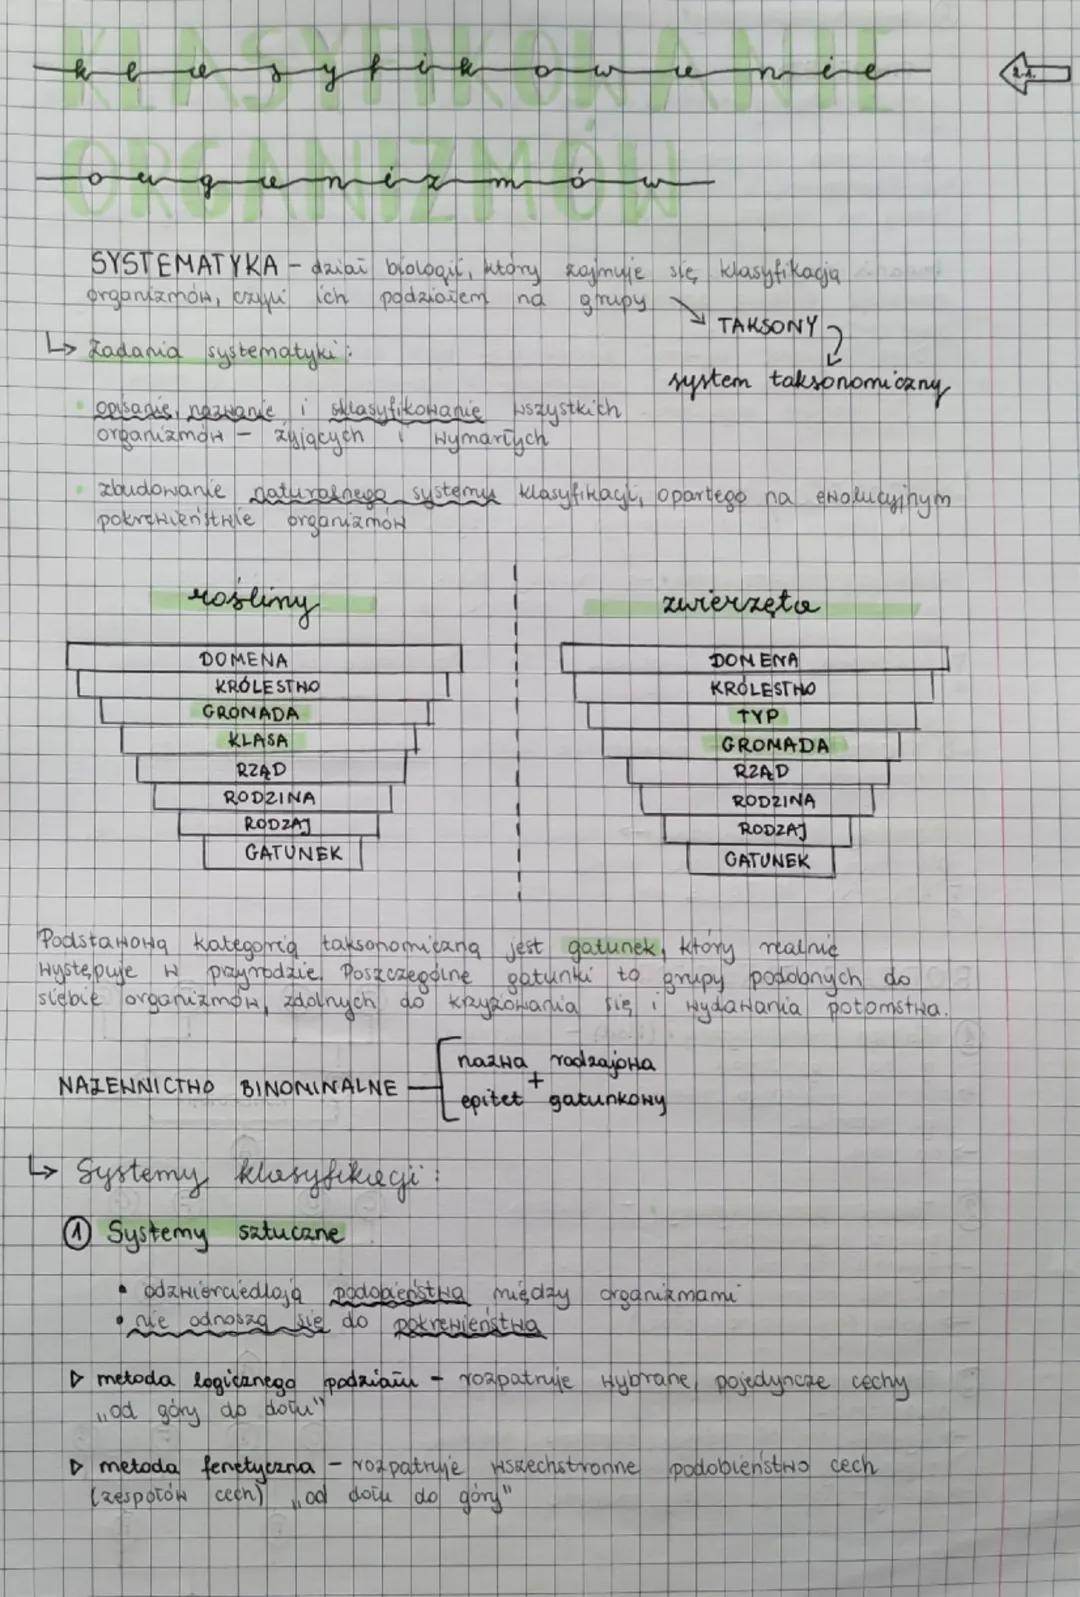 KLASYFIKOWANIE
klasyfikowanie
2.1.
ORGANIZMÓW
organizmów
SYSTEMATYKA - dział biologii, który zajmuje się klasyfikacją
organizmów, czyli ich podziałem na grupy
TAKSONY
system taksonomiczny
Zadania systematyki:
opisanie, nazwanie i sklasyfikowanie wszystkich
organizmów - żyjących i wymarłych
zbudowanie naturalnego systemu klasyfikacji, opartego na ewolucyjnym
pokrewieństwie organizmów
rośliny
DOMENA
KRÓLESTWO
GROMADA
KLASA
RZĄD
RODZINA
RODZAJ
GATUNEK
zwierzęta
DOMENA
KRÓLESTWO
TYP
GROMADA
RZĄD
RODZINA
RODZAJ
GATUNEK
Podstawową kategorią taksonomiczną jest gatunek, który realnie
występuje w przyrodzie. Poszczególne gatunki to grupy podobnych do
siebie organizmów, zdolnych do krzyżowania się i wydawania potomstwa.
NAZEWNICTWO BINOMINALNE
nazwa rodzajowa
+
epitet gatunkowy
Systemy klasyfikacji:
1 Systemy sztuczne
• odzwierciedlają podobieństwa między organizmami
• nie odnoszą się do pokrewieństwa
▷ metoda logicznego podziału - rozpatruje wybrane, pojedyncze cechy
„od góry do dołu"
▷ metoda fenetyczna - rozpatruje wszechstronne podobieństwo cech
(zespołów cech) „od dołu do góry"